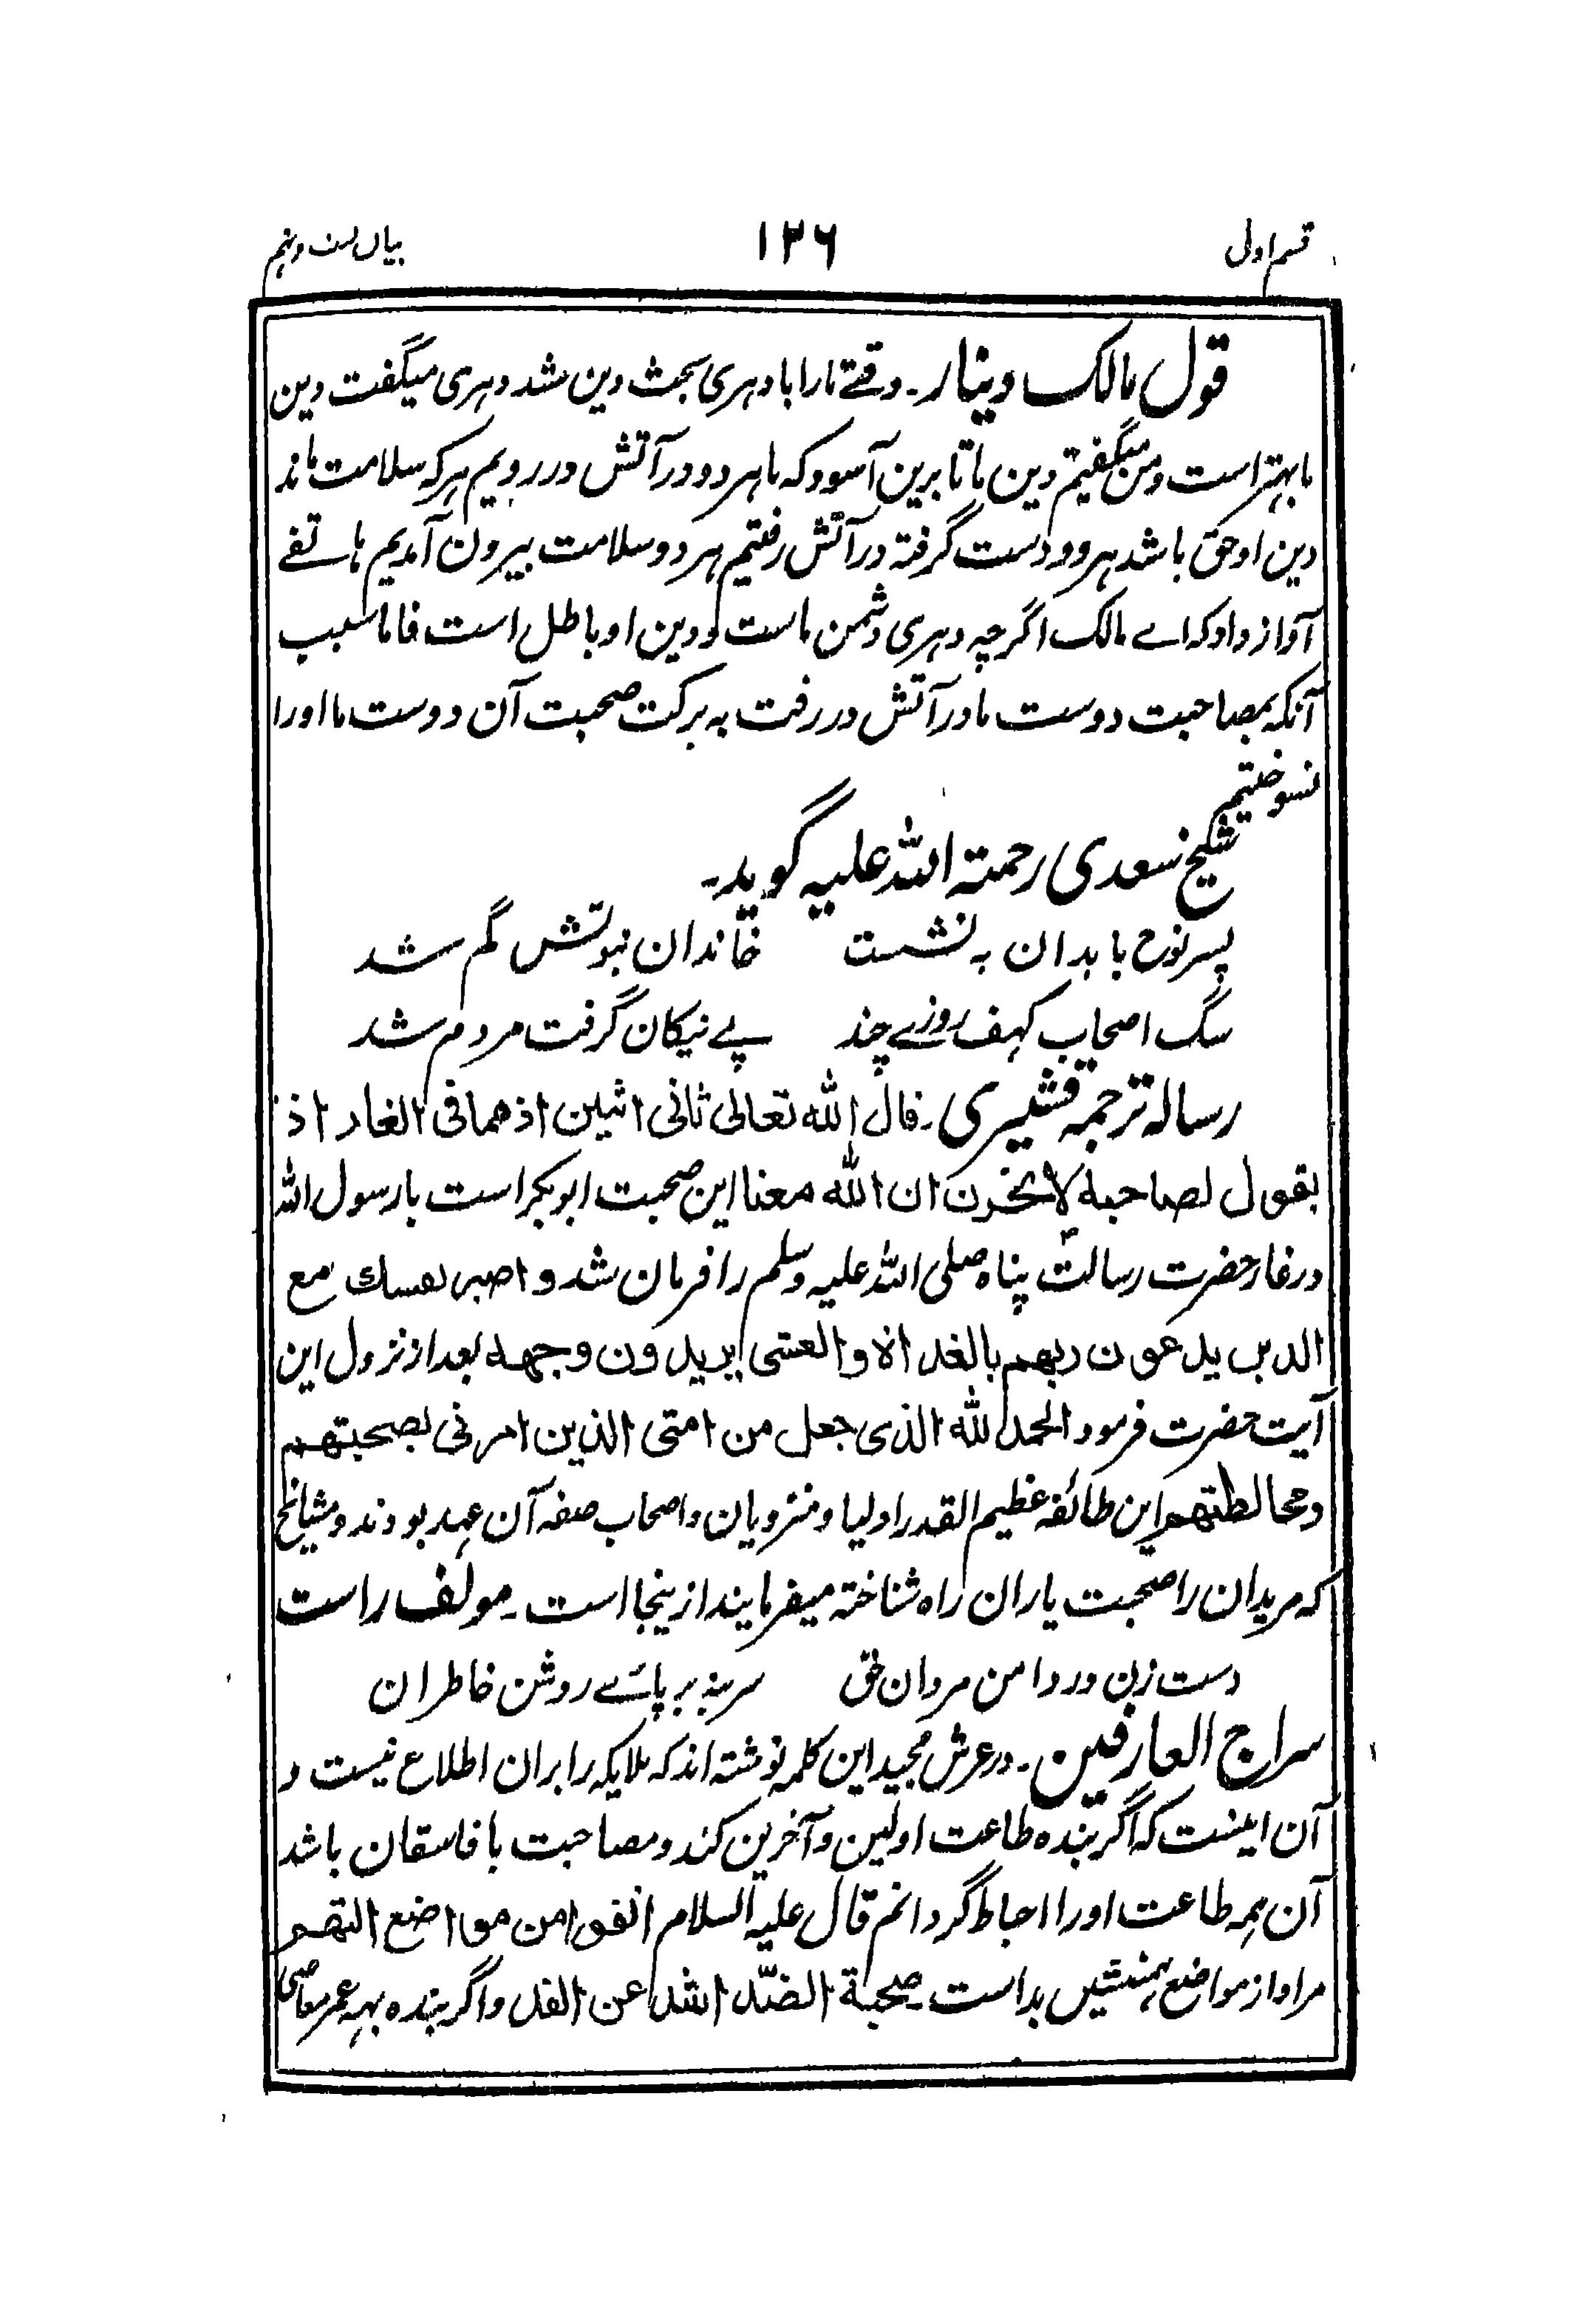 قسم اولی ١٢٦ بیان بست و نهم
قول مالک دینار۔ وقتے مارا با دہری بحث دین شد دہری میگفت دین
ما بہتر است و من میگفتیم دین ما تا برین آسود که ما ہر دو در آتش در رویم ہر که سلامت ماند
دین او حق باشد ہر دو دست گرفته در آتش رفتیم ہر دو سلامت بیرون آمدیم ہاتفے
آواز داد که اے مالک اگرچه دہری دشمن ماست و دین او باطل است فاما سبب
آنکه بمصاحبت دوست ما در آتش در رفت به برکت صحبت آن دوست ما او را
نسوختیم
شیخ سعدی رحمتہ اللہ علیہ گوید۔
پسر نوح با بدان به نشست خاندان نبوتش گم شد
سگ اصحاب کہف روزے چند پے نیکان گرفت مردم شد
رساله ترجمہ قشیری۔ قال الله تعالی ثانی اثنین اذ هما فی الغار اذ
یقول لصاحبه لا تحزن ان الله معنا این صحبت ابوبکر است با رسول الله
در غار حضرت رسالت پناه صلی اللہ علیہ وسلم را فرمان شد و اصبر نفسك مع
الذین یدعون ربهم بالغداة والعشی یریدون وجهه بعد از نزول این
آیت حضرت فرمود الحمد لله الذی جعل من امتی الذین امرنی بصحبتهم
و مخالطتهم این طائفه عظیم القدر اولیا و منزویان و اصحاب صفه آن عہد بودند و مشایخ
که مریدان را صحبت یاران راه شناخته میفرمایند از ینجا است۔ مولف راست
دست زن در دامن مردان حق سر بنہ بر پائے روشن خاطران
سراج العارفین۔ در عرش مجید این کلمہ نوشته اند که ملایکه را بران اطلاع نیست و
آن اینست که اگر بنده طاعت اولین و آخرین کند و مصاحبت با فاسقان باشد
آن ہمه طاعت او را احباط گردانم قال علیہ السلام اتقوا من مواضع التهم
مراد از مواضع ہمنشیں بد است صحبة الضدّ اشد عن القد و اگر بنده ہمه عمر معاصی